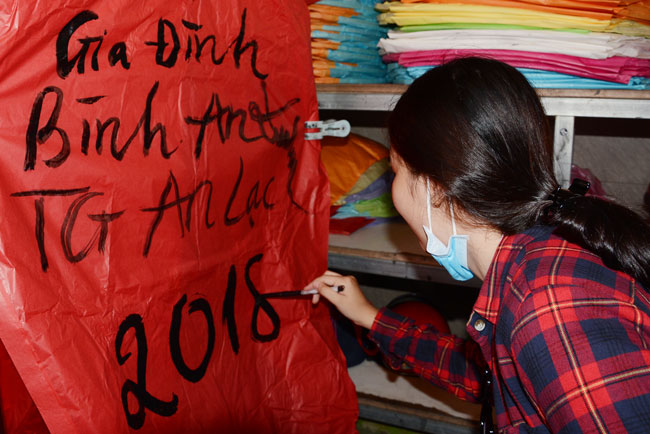 Gia Đình
Bình An
TG An Lạc
2018